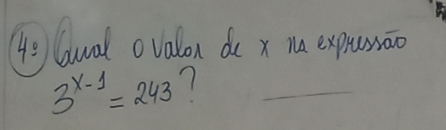 4º Qual o valor de x na expressão
3^{x-1} = 243?